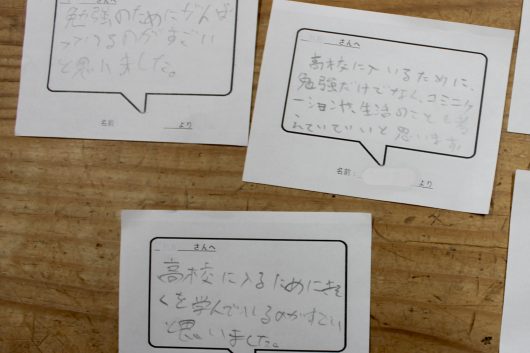 さんへ
勉強のためにがんば
っているのがすごい
と思いました。
名前 より
さんへ
高校に入いるために、
勉強だけでなく、コミニケ
ーションや、生活のことも考
えていていいと思います。
名前: より
さんへ
高校に入るために
くを学んでいるのがすごい
と思いました。